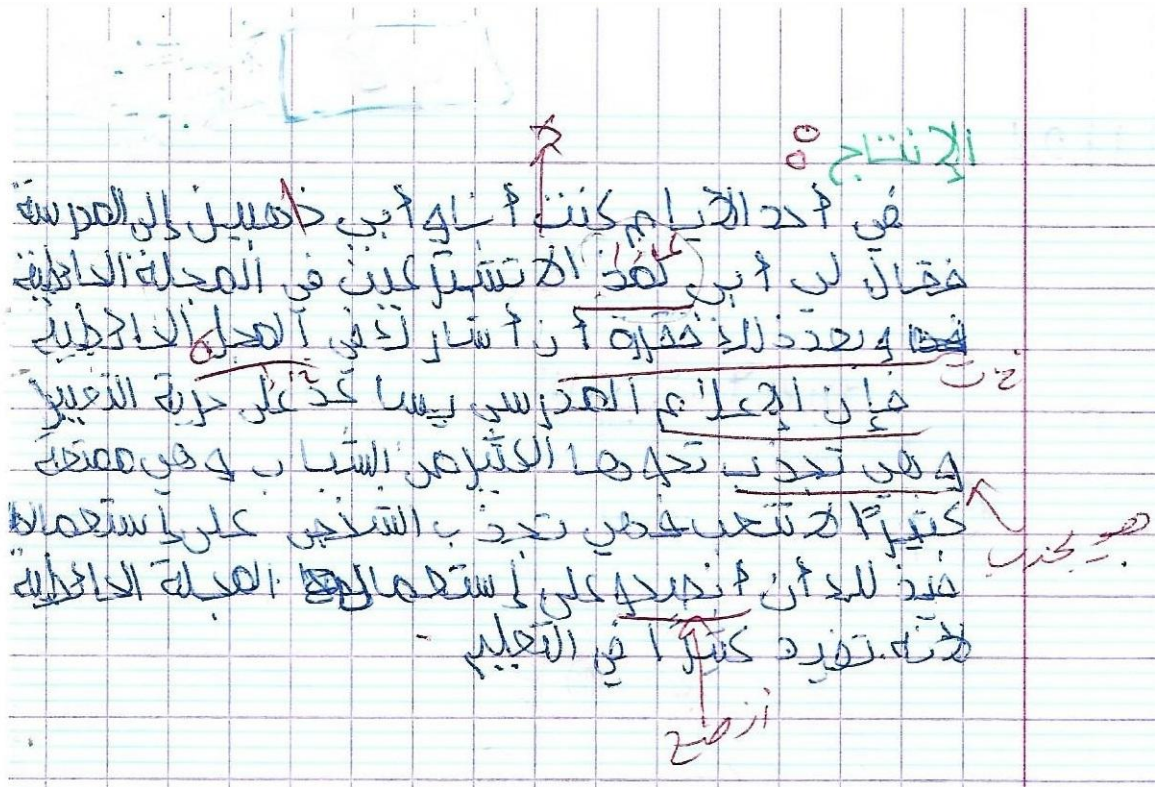 الإنتاج :
في أحد الأيام كنت أنا و أبي ذاهبين إلى المدرسة
فقال لي أبي لمذ الا تشتركين في المجلة الحائطية
و بعد ذلك فقررة أن أشارك في المجلة الحائطية
ت
فإن الإعلام المدرسي يساعد على حرية التعبير
و هي تجذب نحوها الكثير من الشباب و هي ممتعة
كثيرًا لا تتعب فهي تجذب التلاميذ على إستعمالها
هو يجذب
فبذلك أن أنصحو على إستعمال المجلة الحائطية
لأنه تفيد كثيرًا في التعليم
أنصح